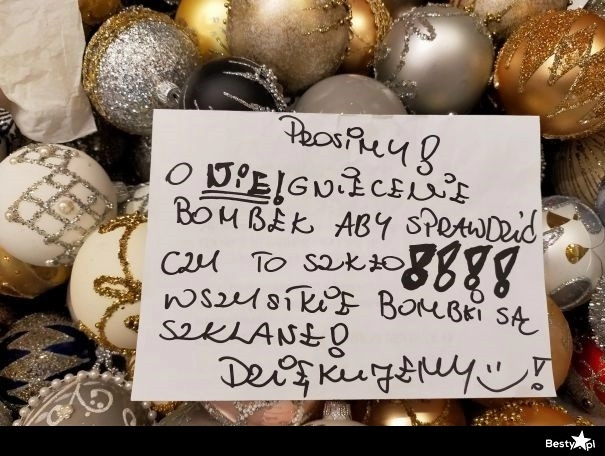 PROSIMY!
O NIE! GNIECENIE
BOMBEK ABY SPRAWDZIĆ
CZY TO SZKŁO!!!!
WSZYSTKIE BOMBKI SĄ
SZKLANE!
DZIĘKUJEMY!
Besty.pl